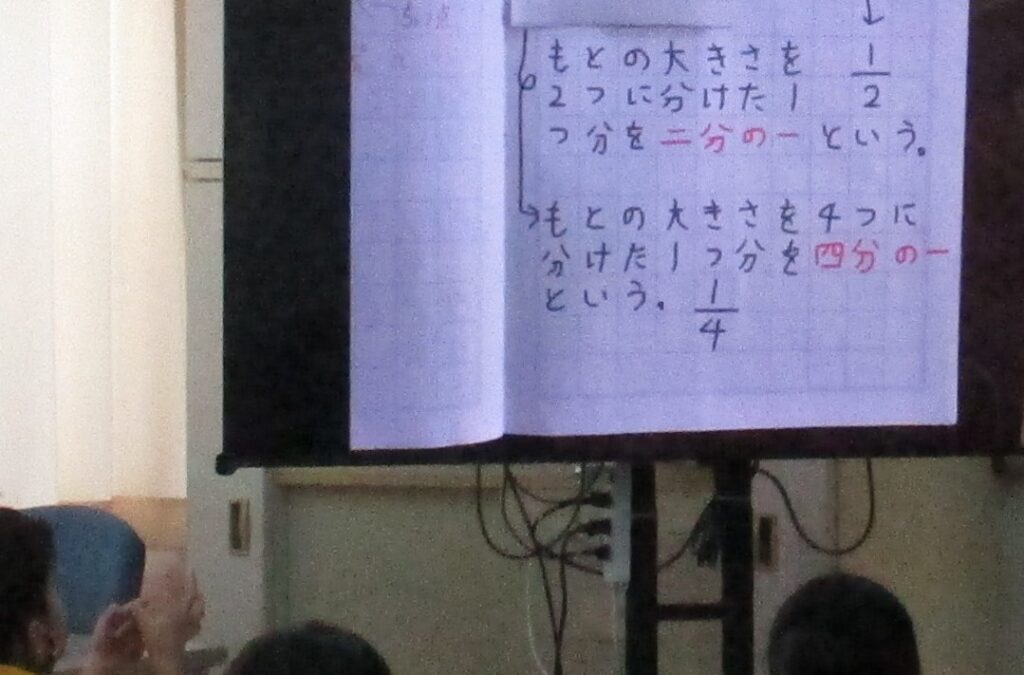 もとの大きさを 1/2
2つに分けた1
つ分を二分の一という。
もとの大きさを4つに
分けた1つ分を四分の一
という。 1/4